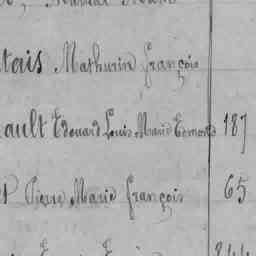 tais Mathurin François
ault Edouard Louis Marie Edmond 187
Pierre Marie François 65
244